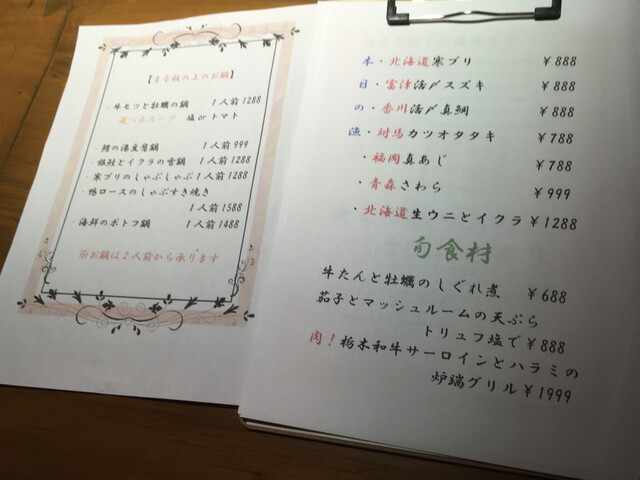 【まな板の上のお鍋】
・牛モツと牡蠣の鍋 1人前1288
選べるスープ 塩orトマト
・鱈の湯豆腐鍋 1人前999
・銀鮭とイクラの雪鍋 1人前1288
・寒ブリのしゃぶしゃぶ 1人前1288
・鴨ロースのしゃぶすき焼き
1人前1588
・海鮮のポトフ鍋 1人前1488
※お鍋は2人前から承ります
本・北海道寒ブリ ¥888
日・富津活〆スズキ ¥888
の・香川活〆真鯛 ¥888
漁・対馬カツオタタキ ¥788
・福岡真あじ ¥788
・青森さわら ¥999
・北海道生ウニとイクラ ¥1288
旬食材
牛たんと牡蠣のしぐれ煮 ¥688
茄子とマッシュルームの天ぷら
トリュフ塩で ¥888
肉!栃木和牛サーロインとハラミの
炉端グリル ¥1999